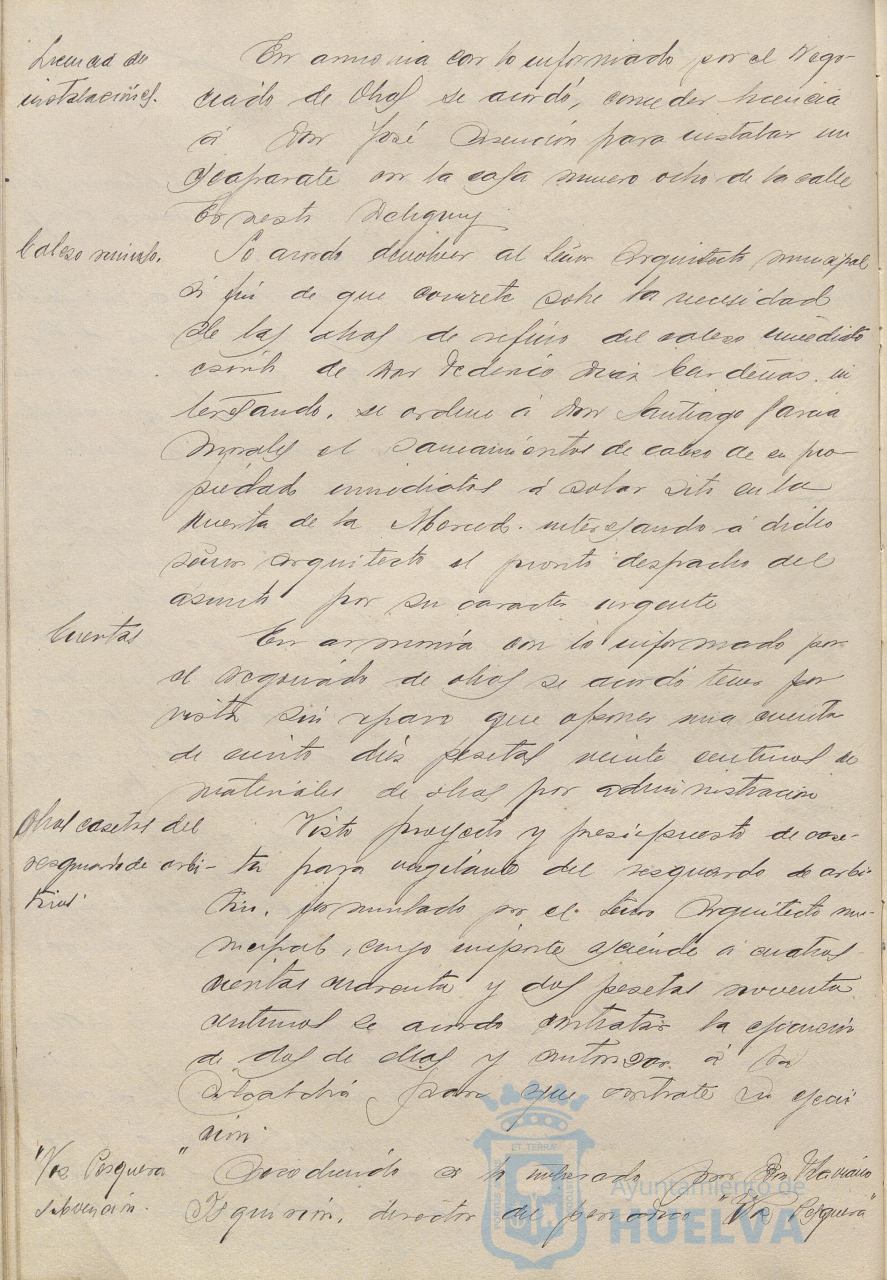 Licencias de
instalaciones.
En armonia con lo informado por el Nego-
ciado de Obras se acordó, conceder licencia
á Don José Asención para instalar un
escaparate en la casa número ocho de la calle
Ernesto Deligny
Cabezo ruinoso.
Se acordó devolver al Señor Arquitecto municipal
á fin de que concrete sobre la necesidad
de las obras de refino del cabezo inmediato
escrito de Don Federico Diaz Cardeñas in
teresando, se ordene á Don Santiago Garcia
Morales el saneamientos de cabezo de su pro-
piedad inmediatos á solar sito en la
Huerta de la Merced. interesando á dicho
señor arquitecto el pronto despacho del
asunto por su caracter urgente
Cuentas
En armonía con lo informado por
el Negociado de obras se acordó tener por
vista sin reparo que oponer una cuenta
de ciento diez pesetas veinte centimos de
materiales de obras por administracion
Obras casetas del
resguardo de arbi-
trios.
Visto proyecto y presupuesto de case-
ta para vigilante del resguardo de arbi
trios, formulado por el Señor Arquitecto mu-
nicipal, cuyo importe asciende á cuatro-
cientas cuarenta y dos pesetas noventa
centimos se acordo contratar la ejecución
de dos de ellas y autorizar á la
Alcaldía para que contrate su ejecu
ción.
"Voz Pesquera"
subvención.
Accediendo á lo interesado por Don
Izquierdo, director del periodico "Voz Pesquera"
ET TERRAE
Ayuntamiento de
HUELVA